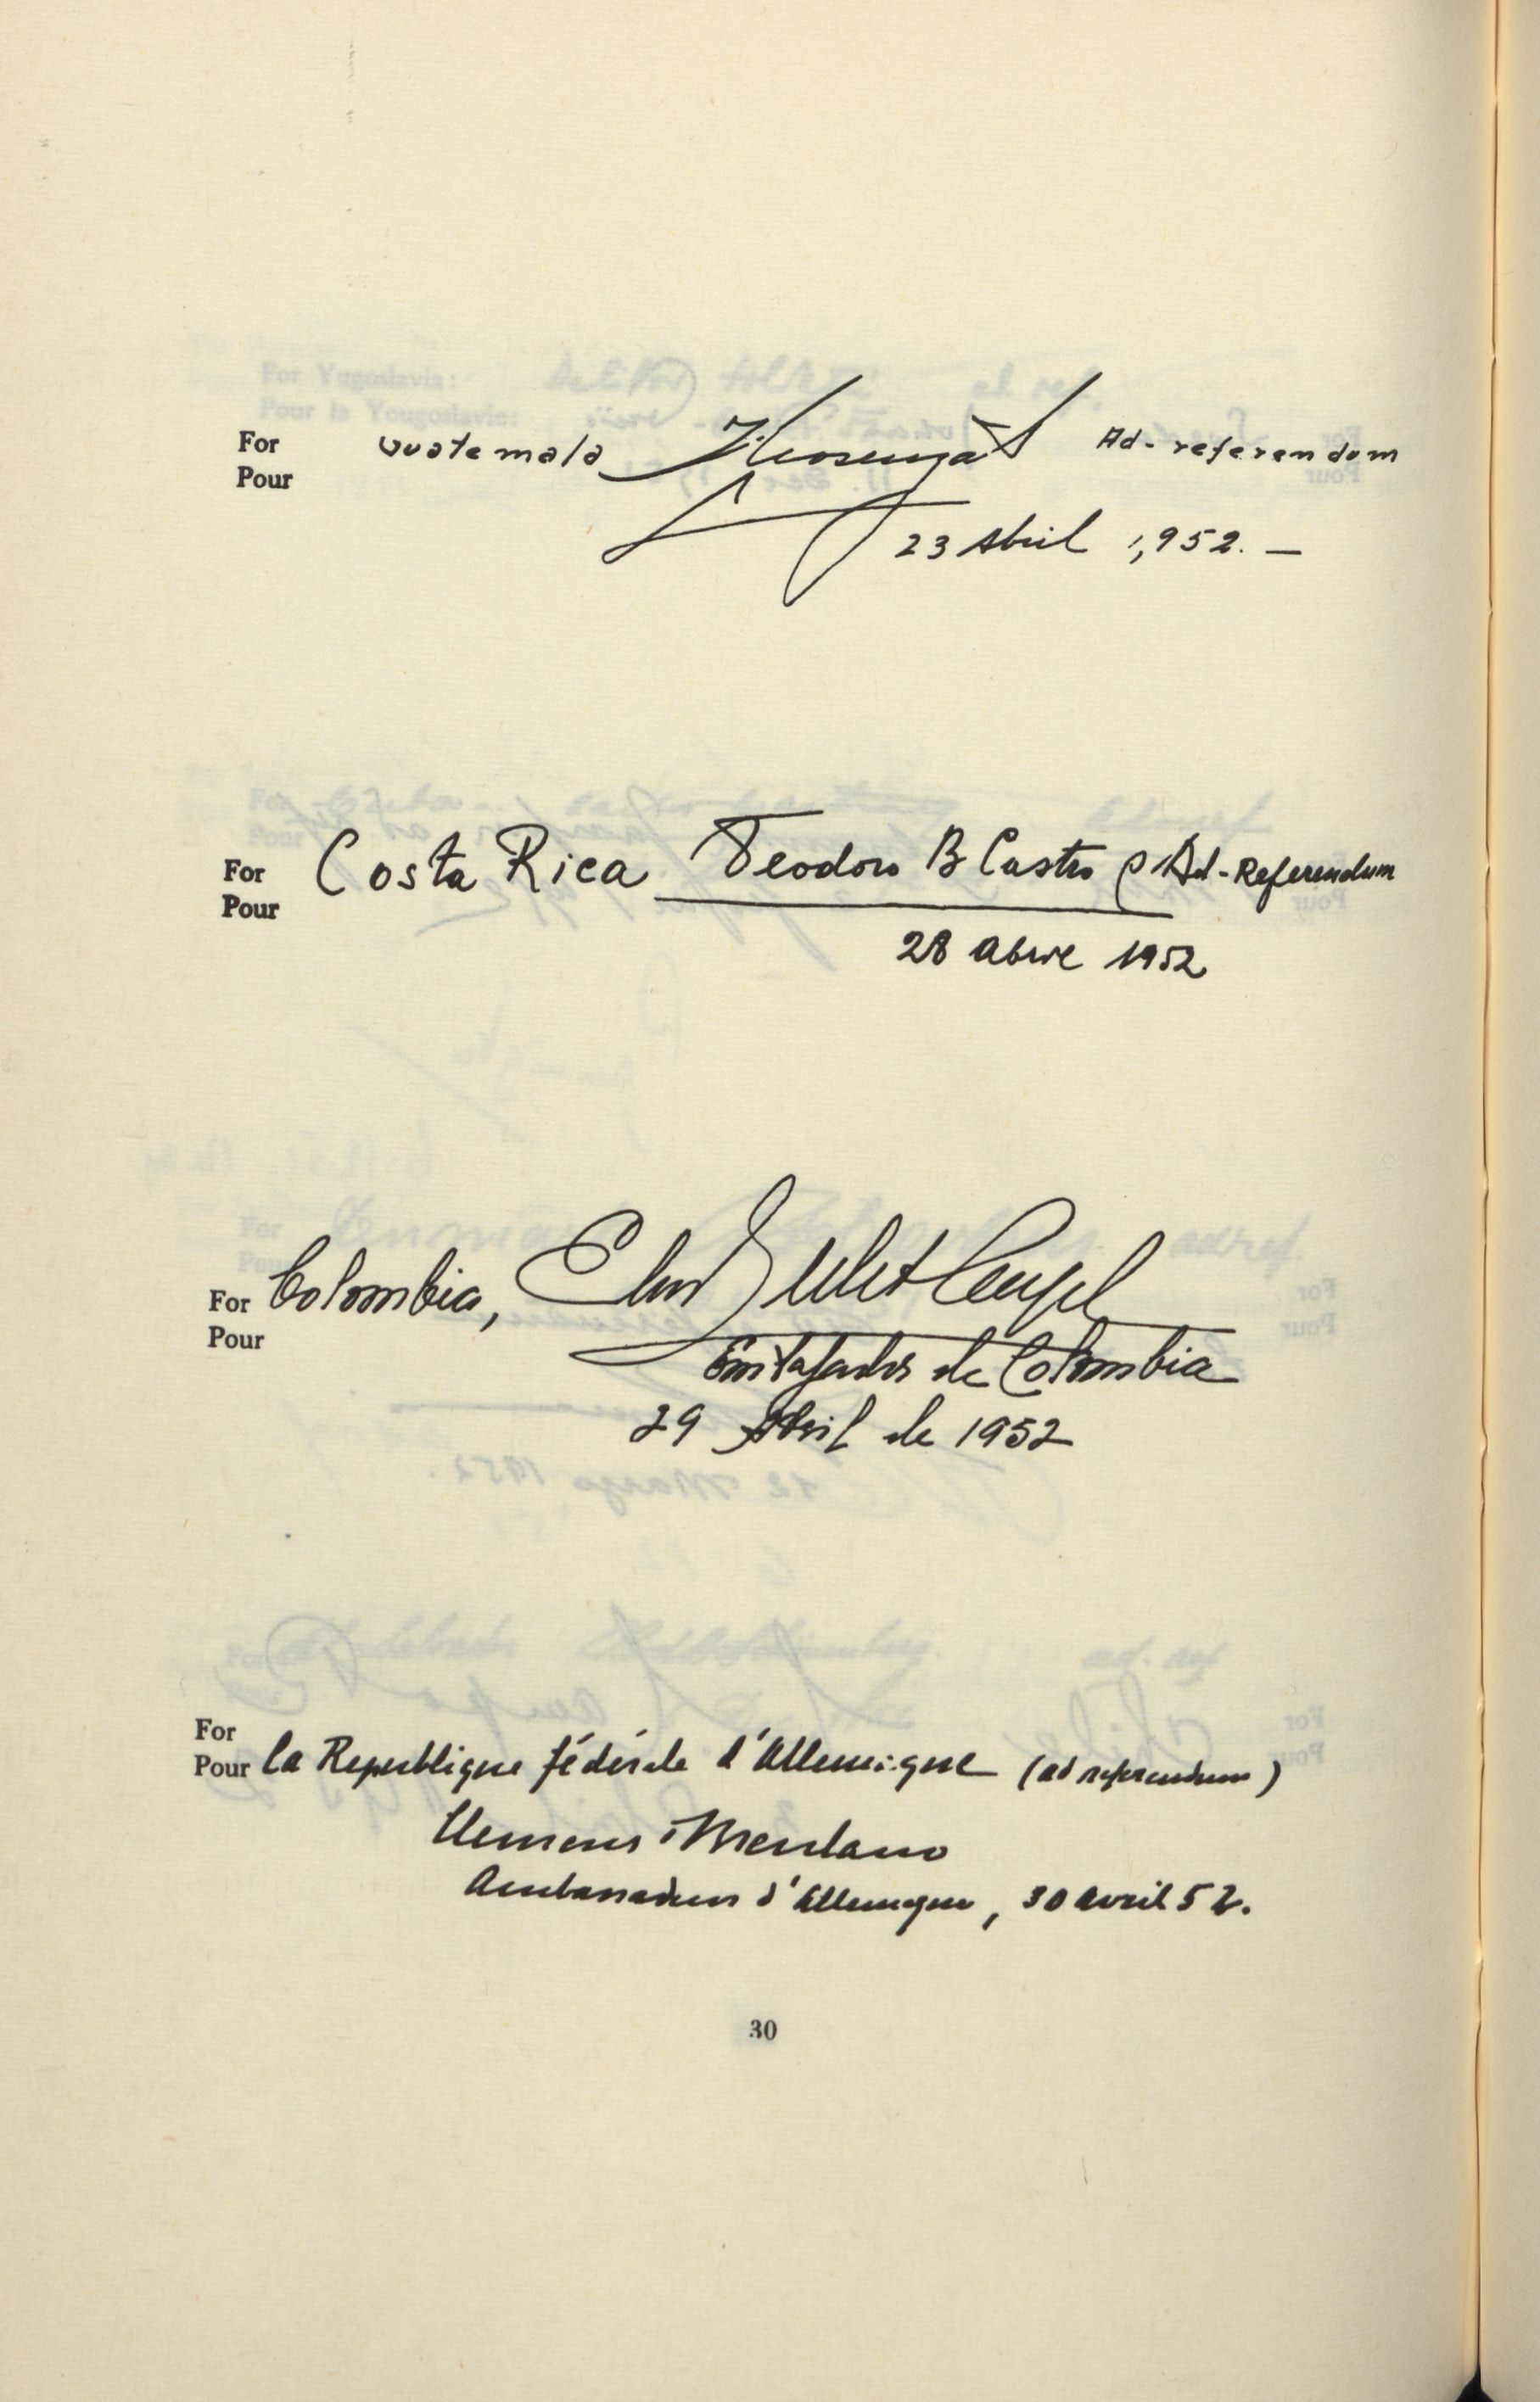 For Guatemala Ad-referendum
Pour
23 Abril 1,952. —
For Costa Rica Teodoro B Castro Ad-Referendum
Pour
28 abril 1952
For Colombia,
Pour
Embajador de Colombia
29 Abril de 1952
For
Pour la Republique fédérale d'Allemagne (ad referendum)
Clemens
Ambassadeur d'Allemagne, 30 avril 52.
30